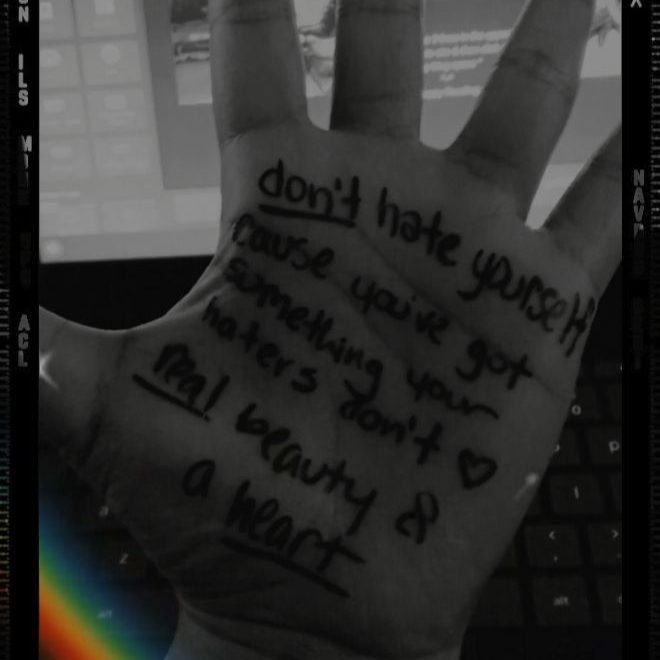 don't hate yourself
cause you've got
something your
haters don't ♡
real beauty &
a heart